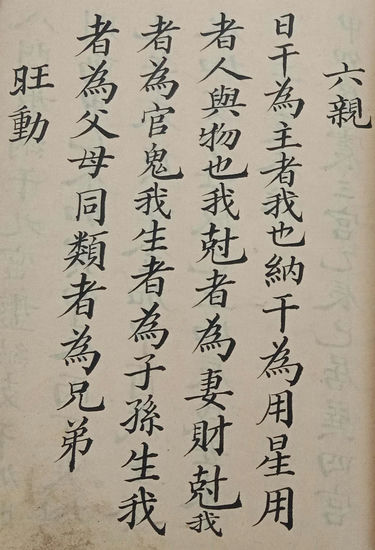 六親
日干為主者我也納干為用星用
者人與物也我尅者為妻財尅我
者為官鬼我生者為子孫生我
者為父母同類者為兄弟
旺動